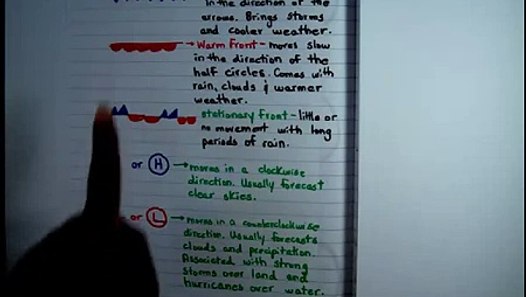 in the direction of the
arrows. Brings storms
and cooler weather.
Warm Front - moves slow
in the direction of the
half circles. Comes with
rain, clouds & warmer
weather.
Stationary Front - little or
no movement with long
periods of rain.
or H → moves in a clockwise
direction. Usually forecast
clear skies.
or L → moves in a counterclockwise
direction. Usually forecasts
clouds and precipitation.
Associated with strong
storms over land and
hurricanes over water.